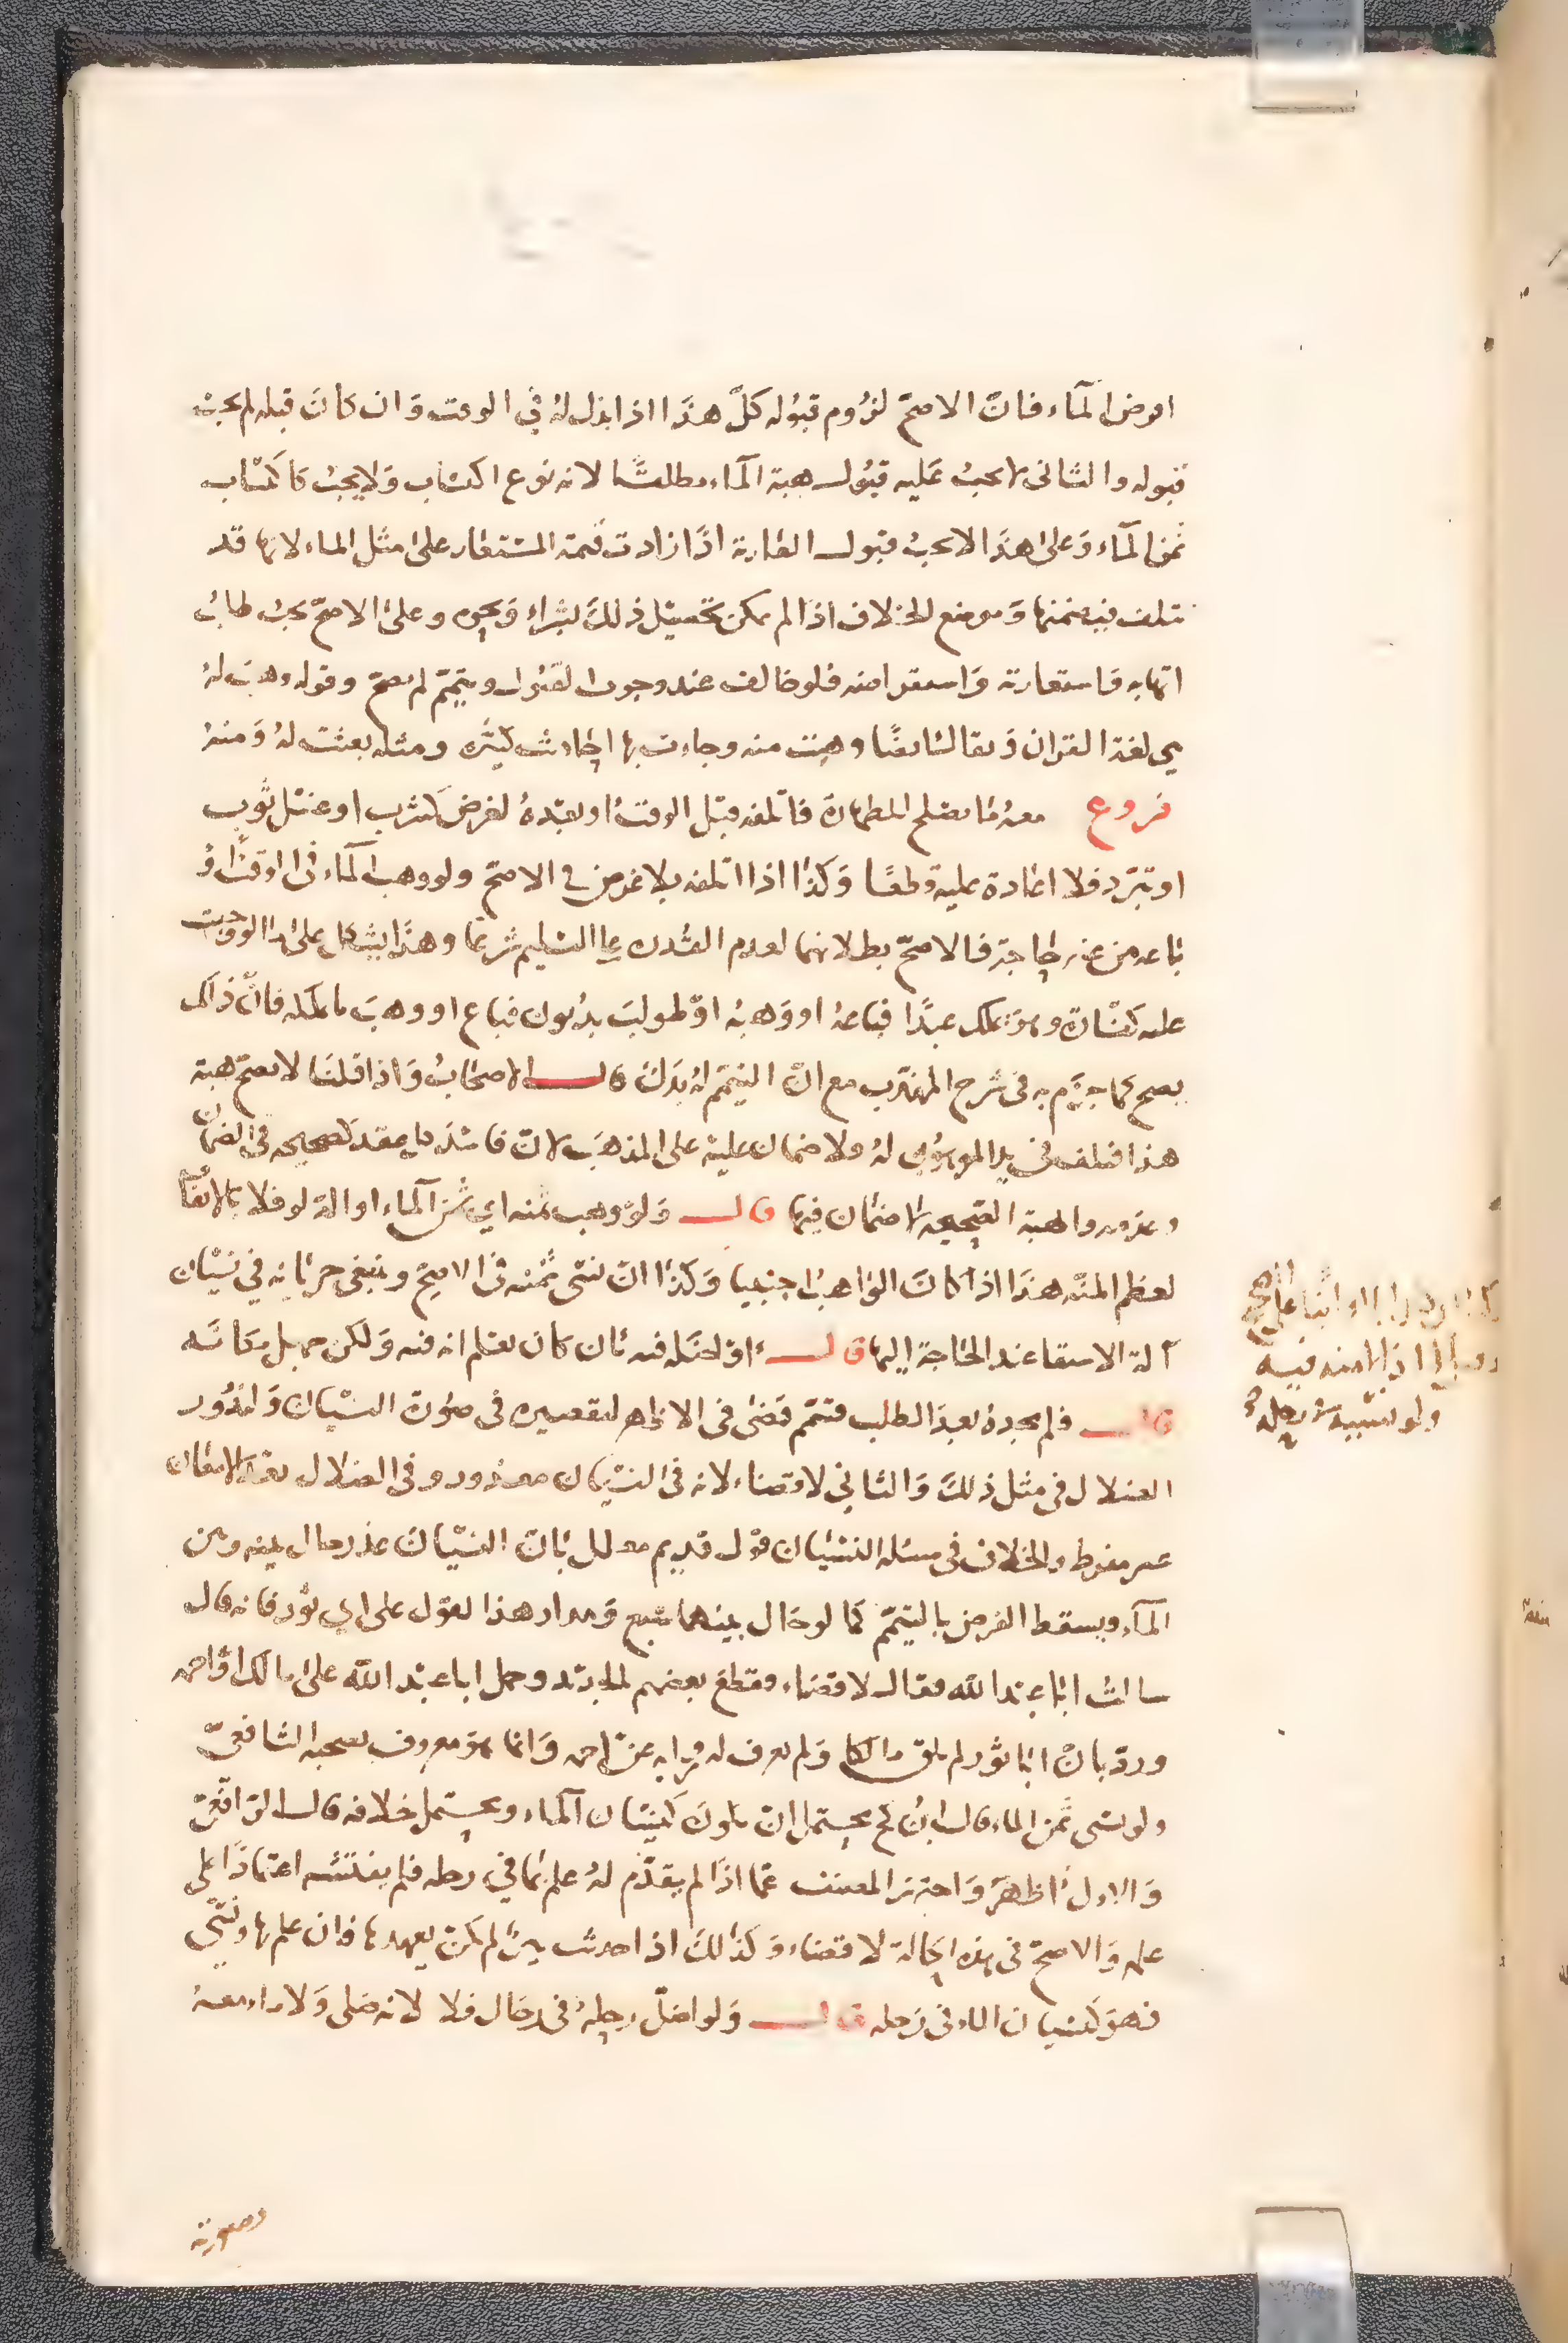 اقرض الماء فان الاصح لزوم قبوله كل هذا اذا بذل له في الوقت وان كان قبله لم يجب
قبوله والثاني لا يجب عليه قبول هبة الماء مطلقا لانه نوع اكتساب ولا يجب كاكتساب
ثمن الماء وعلى هذا لا يجب قبول العارية اذا زادت قيمة المستعار على مثل الماء لانها قد
تتلف فيضمنها وموضع الخلاف اذا لم يمكن تحصيل ذلك بشراء ونحوه وعلى الاصح يجب طلب
اتهابه واستعارته واستقراضه فلو خالف عند وجوب القبول وتيمم لم يصح وقوله وهب له
هي لغة القران ويقال ايضا وهبت منه وجاءت بها احاديث كثيرة ومثله بعت له ومنه
فروع معه ما يصلح للطهارة فاتلفه قبل الوقت او بعده لغرض كشرب او غسل ثوب
او تبرد فلا اعادة عليه قطعا وكذا اذا اتلفه بلا غرض في الاصح ولو وهب الماء في الوقت او
باعه من غير حاجة فالاصح بطلانهما لعدم القدرة على التسليم شرعا وهذا يشكل على ما لو وجبت
عليه كفارة وهو يملك عبدا فباعه او وهبه او طولب بديون فباع او وهب ما يملكه فان ذلك
يصح كما جزم به في شرح المهذب مع ان التيمم له بدل قال الاصحاب واذا قلنا لا يصح هبة
هذا فتلف في يد الموهوب له ولا ضمان عليه على المذهب لان فاسد كل عقد كصحيحه في الضمان
وعدمه والهبة الصحيحة لا ضمان فيها قال ولو وهب ثمنه اي ثمن الماء او الة لو فلا بالاتفاق
لعظم المنة هذا اذا كان الواهب اجنبيا وكذا ان نسي ثمنه في الاصح وينبغي جريانه في نسيان
آلة الاستقا عند الحاجة اليها قال او اضله فيه بان كان يعلم انه فيه ولكن جهل مكانه
قال فلم يجده بعد الطلب فتيمم قضى في الاظهر لتقصيره في صورة النسيان ولندور
الضلال في مثل ذلك والثاني لا قضاء لانه في النسيان معذور وفي الضلال بعد الامعان
غير مفرط والخلاف في مسئلة النسيان قول قديم معلل بان النسيان عذر حال بينه وبين
الماء ويسقط الفرض بالتيمم كما لو حال بينهما سبع ومدار هذا القول على ابي ثور فانه قال
سالت ابا عبد الله فقال لا قضاء وقطع بعضهم بالجديد وحمل ابا عبد الله على مالك او احمد
ورد بان ابا ثور لم يلق مالكا ولم يعرف له رواية عن احمد وانما هو معروف بصحبة الشافعي
ولو نسي ثمن الماء قال ابن كج يحتمل ان يكون كنسيان الماء ويحتمل خلافه قال الرافعي
والاول اظهر واحترز المصنف عما اذا لم يتقدم له علم بما في رحله فلم يفتشه اعتمادا على
علمه والاصح في هذه الحالة لا قضاء وكذلك اذا احدث بير لم يكن يعهدها فان علم بها ونسي
فهو كنسيان الماء في رحله قال ولو اضل رحله في رحال فلا لانه صلى ولا ماء معه
ولو نسيه في رحله
وصورته